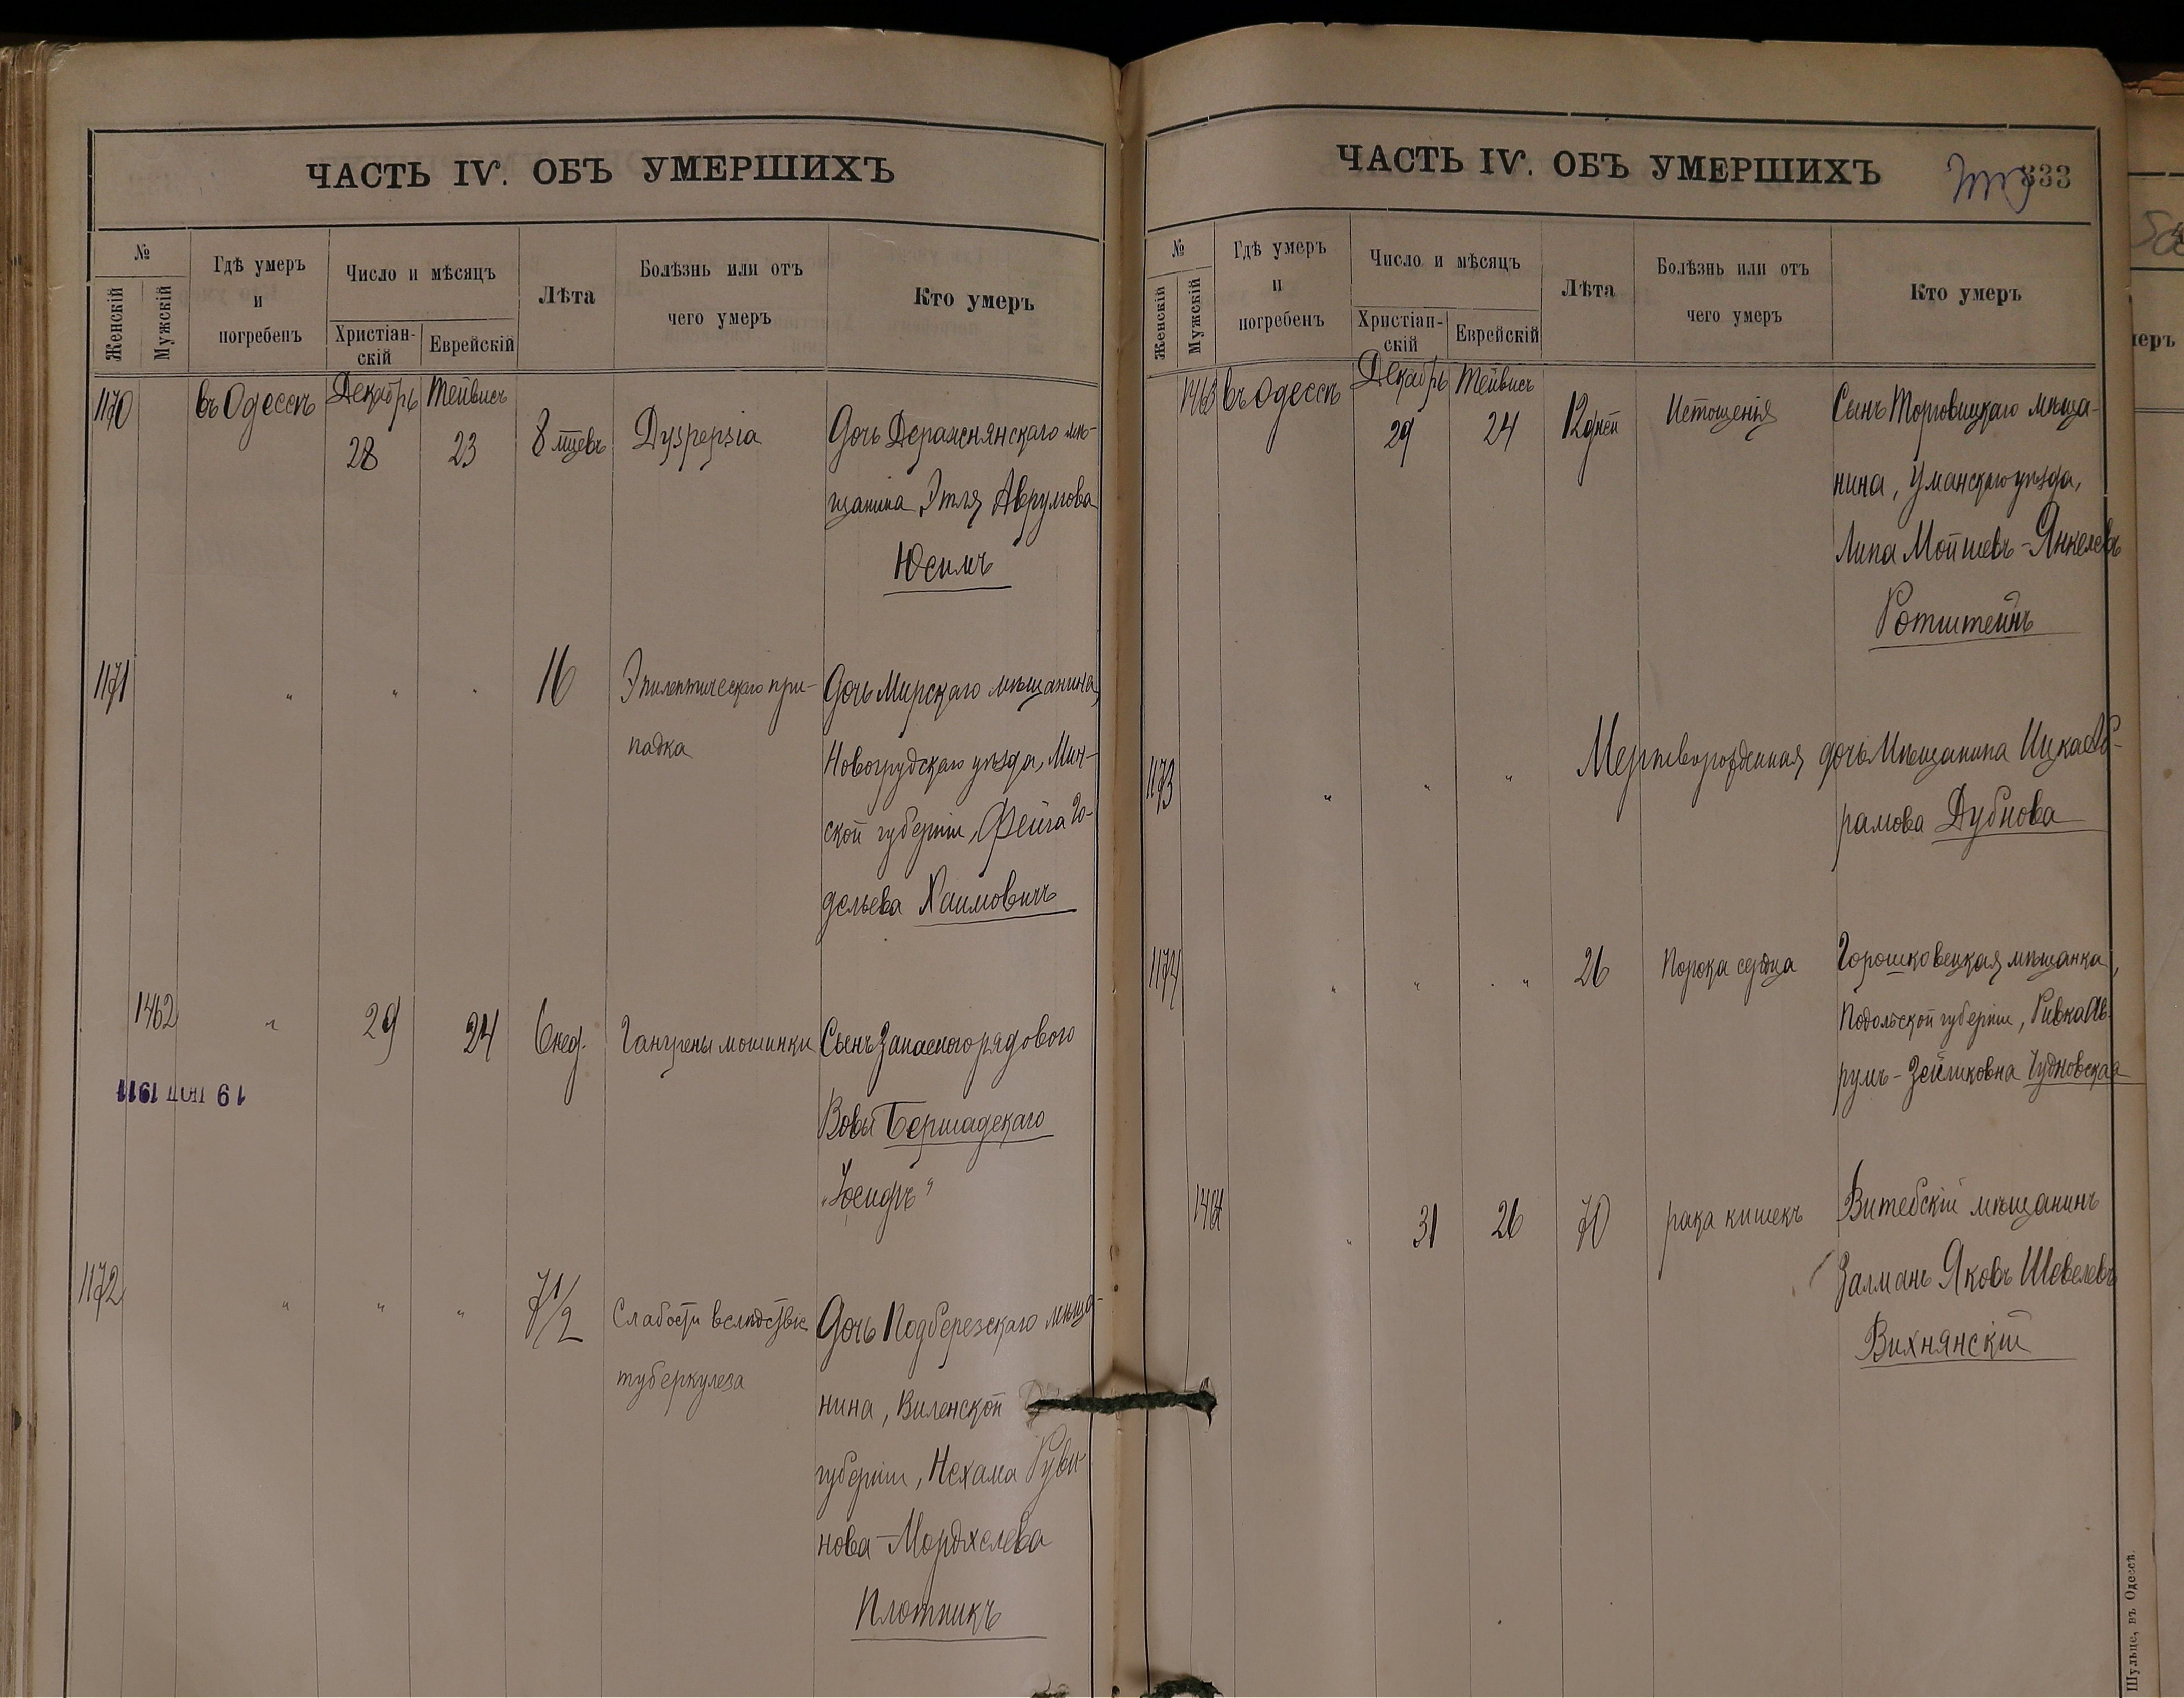 ЧАСТЬ IV. ОБЪ УМЕРШИХЪ
№
Женскій
Мужскій
Гдѣ умеръ
и
погребенъ
Число и мѣсяцъ
Христіан-
скій
Еврейскій
Лѣта
Болѣзнь или отъ
чего умеръ
Кто умеръ
1170 въ Одессѣ Декабрь Тейвисъ
28 23 8 мцевъ Dyspepsia Дочь Деражнянскаго мѣ-
щанина, Этля Аврумова
Юсимъ
1171 " " " 16 Эпилептическаго при- Дочь Мирскаго мѣщанина,
падка Новогрудскаго уѣзда, Мин-
ской губерніи, Фейга Го-
дельева Хаимовичъ
1462 " 29 24 6 нед. Гангрены мошинки Сынъ Запасного рядового
19 1911
Вовы Бершадскаго
"Іосифъ"
1172 " " " 7 1/2 Слабости вслѣдствіе Дочь Подберезскаго мѣща-
туберкулеза
нина, Виленской
губерніи, Нехама Руви-
нова-Мордхелева
Плотникъ
ЧАСТЬ IV. ОБЪ УМЕРШИХЪ
333
№
Женскій
Мужскій
Гдѣ умеръ
и
погребенъ
Число и мѣсяцъ
Христіан-
скій
Еврейскій
Лѣта
Болѣзнь или отъ
чего умеръ
Кто умеръ
1463 въ Одессѣ Декабрь Тейвисъ
29 24 12 дней Истощенія Сынъ Торговицкаго мѣща-
нина, Уманскаго уѣзда,
Липа Мойшевъ-Янкелевъ
Ротштейнъ
1173 " " " Мертворожденная дочь Мѣщанина Ицка Аб-
рамова Дубнова
1174 " " " 26 Порока сердца Горошковецкая мѣщанка,
Подольской губерніи, Ривка Ав-
румъ-Зейликовна Чудновская
1464 " 31 26 70 рака кишекъ Витебскій мѣщанинъ
Залманъ Яковъ Шевелевъ
Вихнянскій
Шульце, въ Одессѣ.